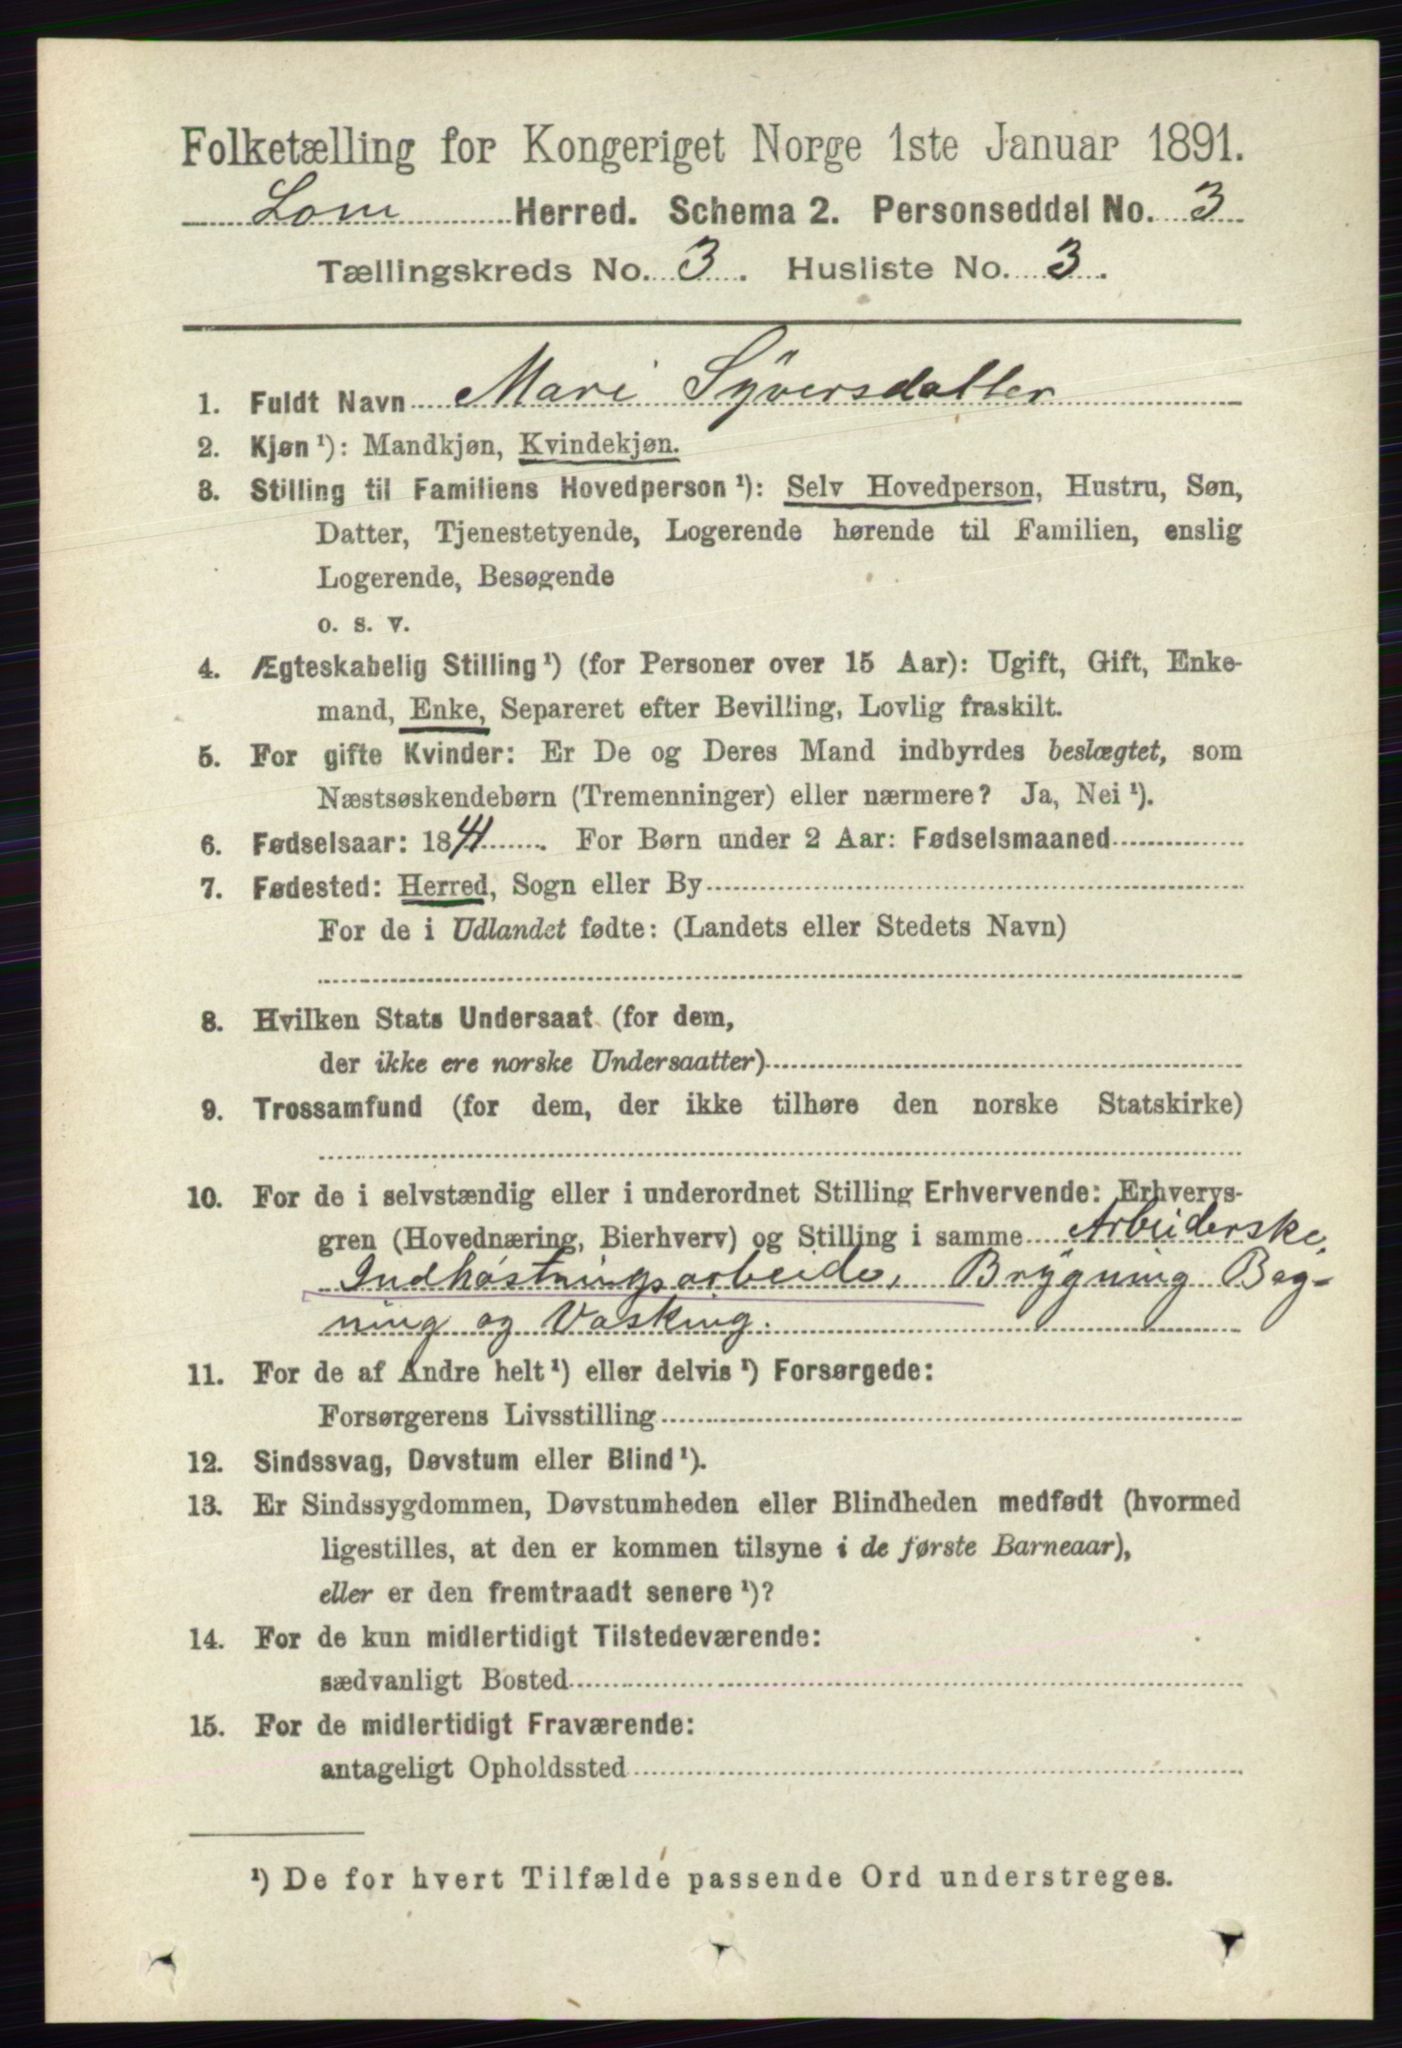 Folketælling for Kongeriget Norge 1ste Januar 1891.
Lom Herred. Schema 2. Personseddel No. 3
Tællingskreds No. 3. Husliste No. 3.
1. Fuldt Navn Mari Syversdatter
2. Kjøn ¹): Mandkjøn, Kvindekjøn.
3. Stilling til Familiens Hovedperson ¹): Selv Hovedperson, Hustru, Søn,
Datter, Tjenestetyende, Logerende hørende til Familien, enslig
Logerende, Besøgende
o. s. v.
4. Ægteskabelig Stilling ¹) (for Personer over 15 Aar): Ugift, Gift, Enke-
mand, Enke, Separeret efter Bevilling, Lovlig fraskilt.
5. For gifte Kvinder: Er De og Deres Mand indbyrdes beslægtet, som
Næstsøskendebørn (Tremenninger) eller nærmere? Ja, Nei ¹).
6. Fødselsaar: 1841. For Børn under 2 Aar: Fødselsmaaned
7. Fødested: Herred, Sogn eller By
For de i Udlandet fødte: (Landets eller Stedets Navn)
8. Hvilken Stats Undersaat (for dem,
der ikke ere norske Undersaatter)
9. Trossamfund (for dem, der ikke tilhøre den norske Statskirke)
10. For de i selvstændig eller i underordnet Stilling Erhvervende: Erhvervs-
gren (Hovednæring, Bierhverv) og Stilling i samme Arbeiderske,
Indhøstningsarbeide, Brygning Bag-
ning og Vasking.
11. For de af Andre helt ¹) eller delvis ¹) Forsørgede:
Forsørgerens Livsstilling
12. Sindssvag, Døvstum eller Blind ¹).
13. Er Sindssygdommen, Døvstumheden eller Blindheden medfødt (hvormed
ligestilles, at den er kommen tilsyne i de første Barneaar),
eller er den fremtraadt senere ¹)?
14. For de kun midlertidigt Tilstedeværende:
sædvanligt Bosted
15. For de midlertidigt Fraværende:
antageligt Opholdssted
¹) De for hvert Tilfælde passende Ord understreges.